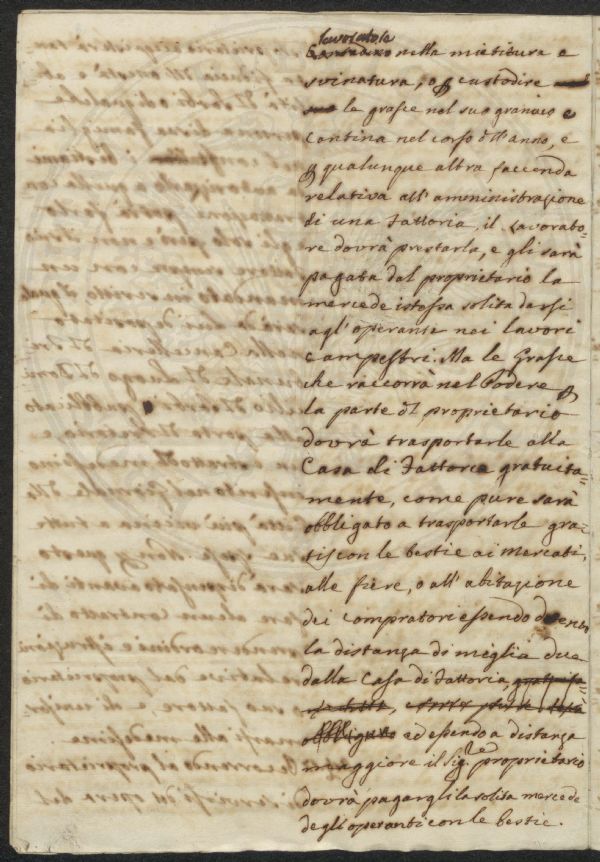 lavoratore
Contadino nella mietitura e
svinatura, o p custodire
le grasce nel suo granaio e
Cantina nel corso dll'anno, e
p qualunque altra faccenda
relativa all'amministrazione
di una Fattoria, il Lavorato=
re dovrà prestarla, e gli sarà
pagata dal proprietario la
mercede istessa solita darsi
agl'operante nei lavori
campestri. Ma le Grasce
che raccorrà nel Podere p
la parte dl proprietario
dovrà trasportarle alla
Casa di Fattoria gratuita=
mente, come pure sarà
obbligato a trasportarle gra=
tis con le bestie ai mercati,
alle fiere, o all'abitazione
dei compratori essendo dentro
la distanza di miglia due
dalla Casa di Fattoria,
obbligato ad essendo a distanza
maggiore il Sig.re proprietario
dovrà pagargli la solita mercede
degli operanti con le bestie.